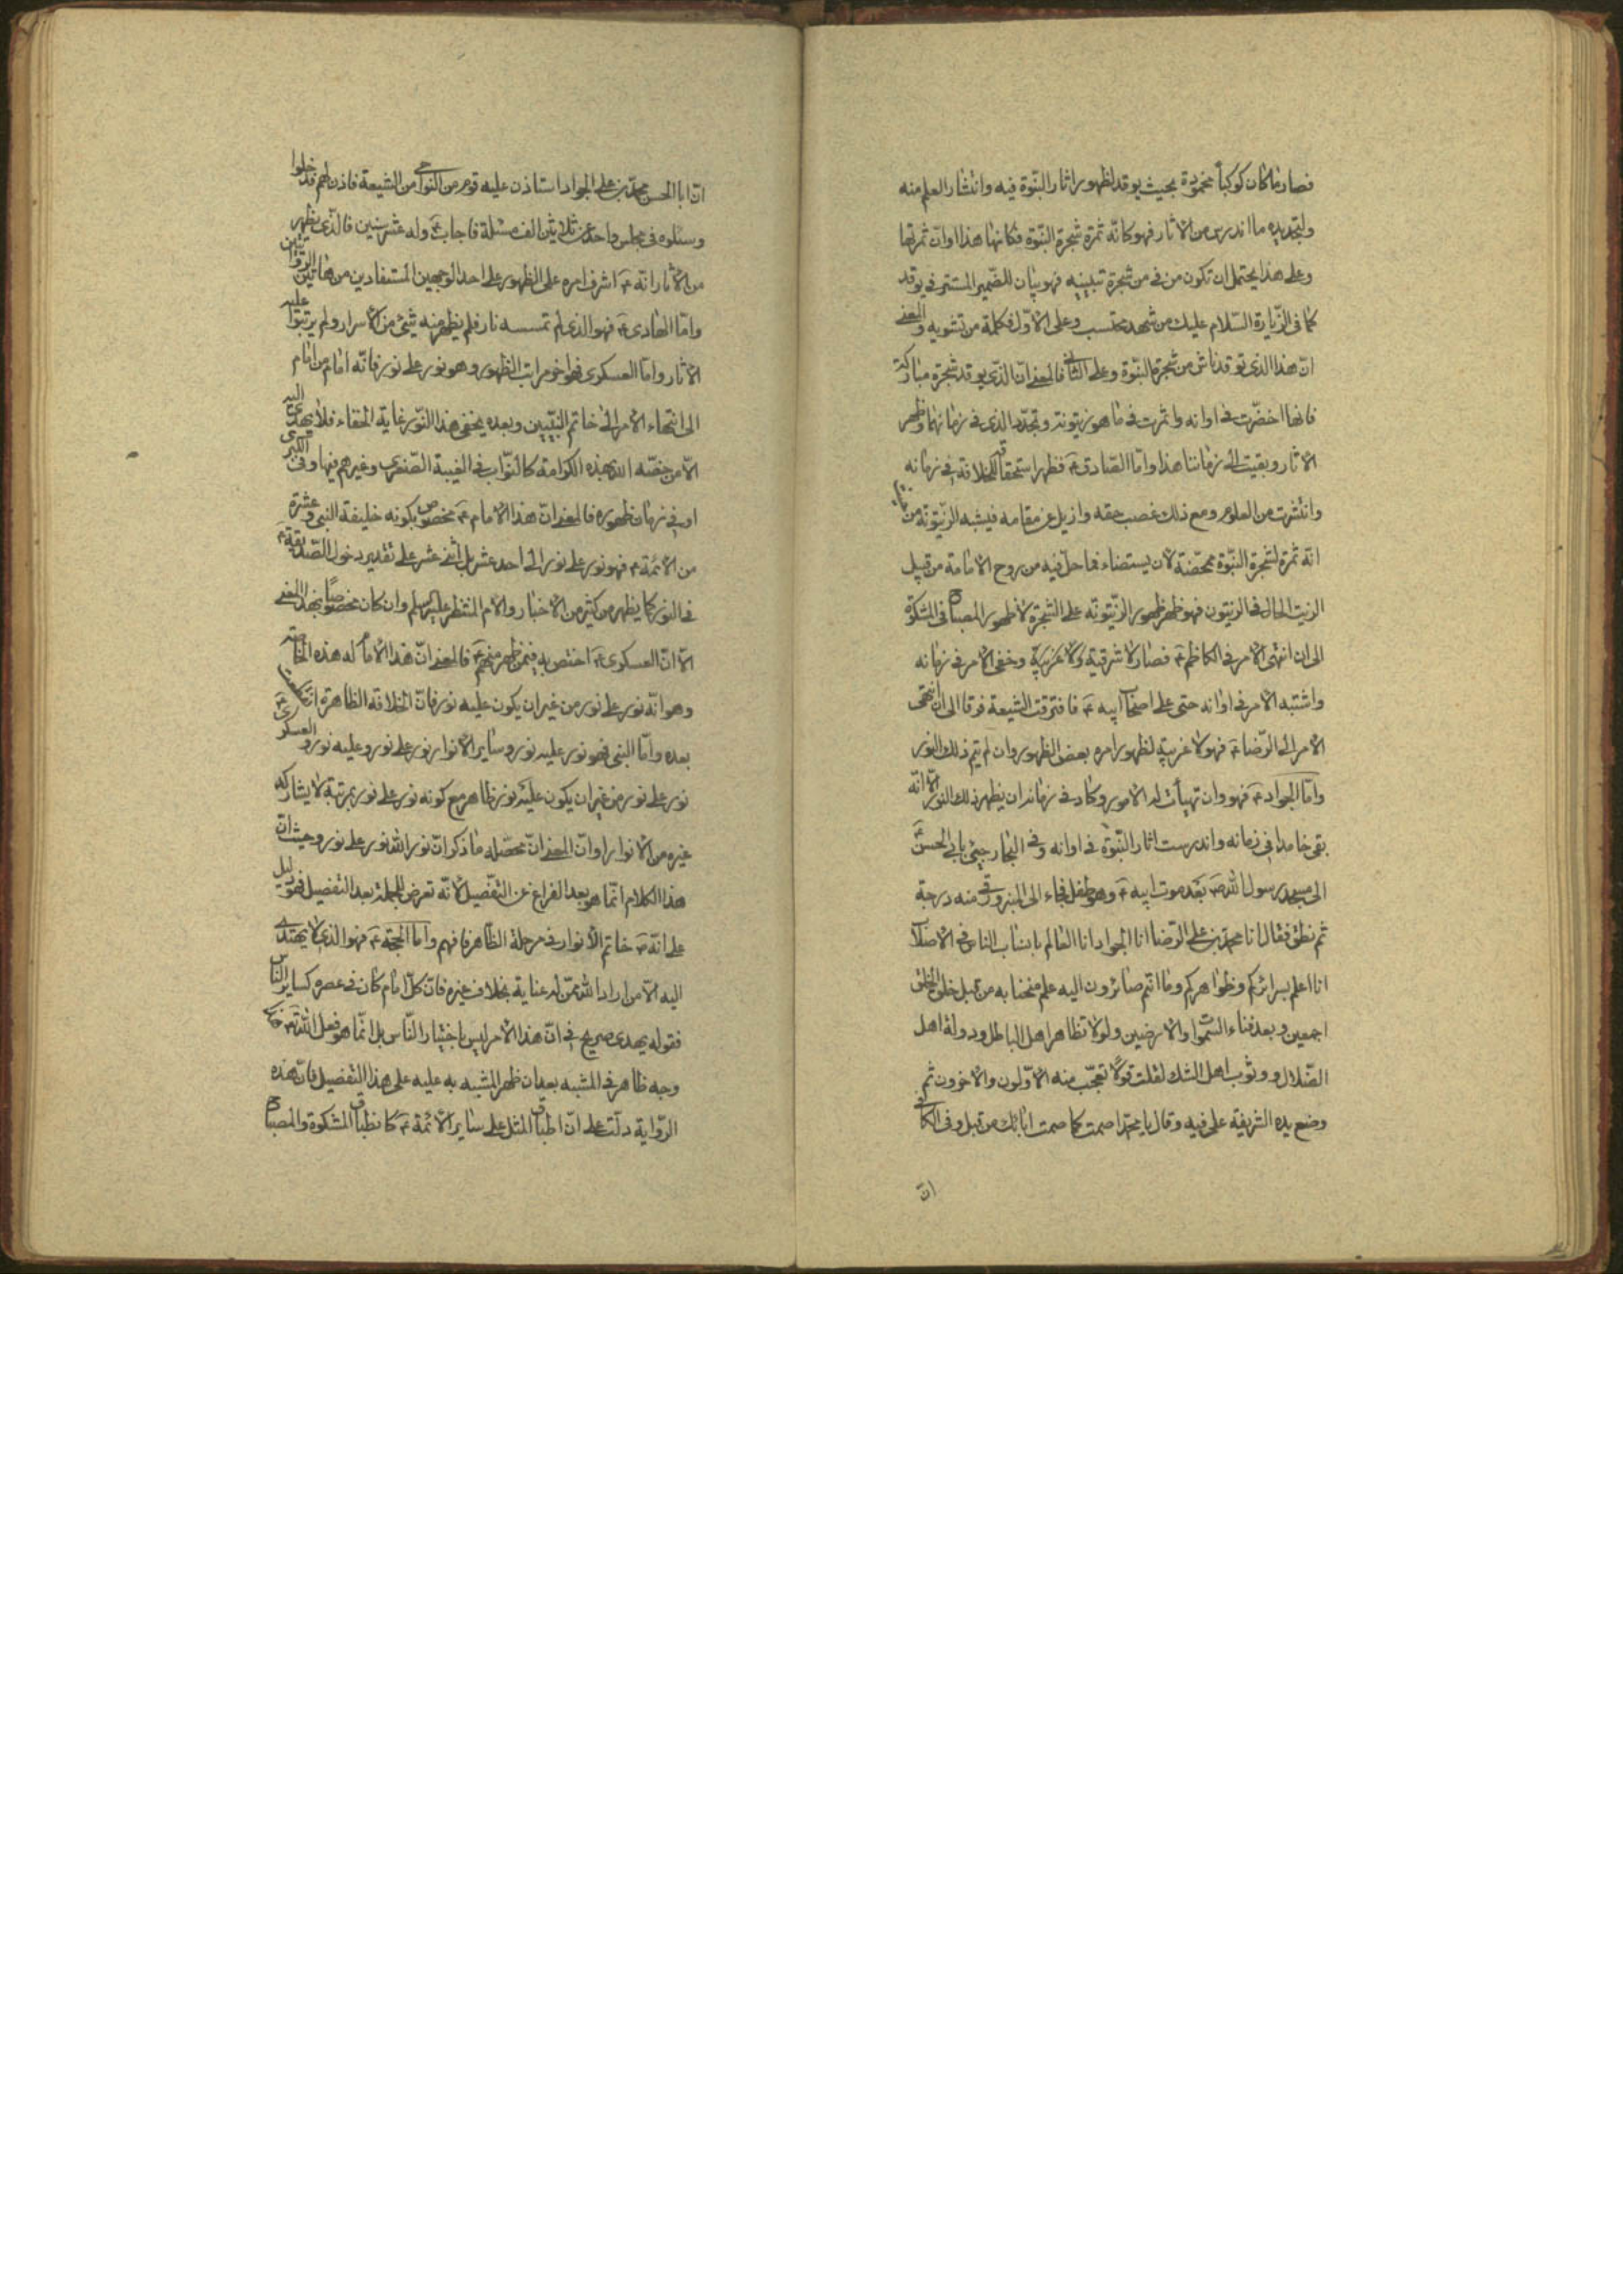 فصار ما كان كوكبا بحيث يوقد لظهور اثار النبوة فيه وانتشار العلم منه
ولتجديده ما اندرس من الاثار فهو كانه ثمرة شجرة النبوة فكانها هذا اوان ثمرتها
وعلى هذا يحتمل ان تكون من في من شجرة تبيينيه فهو بيان للضمير المستتر في يوقد
كما فى الزيارة السلام عليك من شهيد محتسب وعلى الاول فكلمة من نشويه والمعنى
ان هذا الذى توقد ناش من شجرة النبوة وعلى الثانى فالمعنى ان الذى يوقد شجرة مباركة
فانها اخضرت فى اوانه واثمرت فى ما هو زيتونة وتجدد الذى فى زمانها وظهر
الاثار وبقيت الى زماننا هذا واما الصادق ع فظهر استحقاقه للخلافة فى زمانه
وانتشرت من العلوم ومع ذلك غصب حقه وازيل عن مقامه فيشبه الزيتونة من
انه ثمرة لشجرة النبوة لان يستضاء فما حل فيه من روح الامامة من قبيل
الزيت الحال فى الزيتون فهو ظهر ظهور الزيتونة على الشجرة لا ظهور المصباح فى المشكوة
الى ان انتهى الامر فى الكاظم ع فصار لا شرقية ولا غربية وخفى الامر فى زمانه
واشتبه الامر فى اوانه حتى على اصحاب ابيه ع فافترقت الشيعة فرقا الى ان انتهى
الامر الى الرضا ع فهو لا غربية لظهور امره بعض الظهور وان لم يتم ذلك النور
واما الجواد ع فهو وان تهيأت له الامور وكاد فى زمانه ان يظهر ذلك النور الا انه
بقى خامدا فى زمانه واندرست اثار النبوة فى اوانه وفى البحار جيئ بابى الحسن
الى مسجد رسول الله ص بعد موت ابيه ع وهو طفل فجاء الى المنبر ورقى منه درجة
ثم نطق فقال انا محمد بن على الرضا انا الجواد انا العالم بانساب الناس فى الاصلاب
انا اعلم بسرائركم وظواهركم وما انتم صائرون اليه علم منحنا به من قبل خلق الخلق
اجمعين وبعد فناء السموات والارضين ولولا تظاهر اهل الباطل ودولة اهل
الضلال ووثوب اهل الشك لقلت قولا تعجب منه الاولون والاخرون ثم
وضع يده الشريفة على فيه وقال يا محمد اصمت كما صمت ابائك من قبل وفى الكافى
ان
ان ابا الحسن محمد بن على الجواد استاذن عليه قوم من النواحى من الشيعة فاذن لهم فدخلوا
وسئلوه فى مجلس واحد عن ثلاثين الف مسئلة فاجاب ع وله عشر سنين فالذى يظهر
من الاثار انه ع اشرف امره على الظهور على احد الوجهين المستفادين من هاتين الروايتين
واما الهادى ع فهو الذى لم تمسسه نار فلم يظهر منه شئ من الاسرار ولم يرتبوا عليه
الاثار واما العسكرى فهو اخر مراتب الظهور وهو نور على نور فانه امام من امام
الى انتهاء الامر الى خاتم النبيين وبعده يختفى هذا النور غاية الخفاء فلا يهتدى اليه
الا من خصه الله بهذه الكرامة كالنواب فى الغيبة الصغرى وغيرهم فيها وفى الكبرى
او فى زمان ظهوره فالمعنى ان هذا الامام ع مخصوص بكونه خليفة النبى وعشرة
من الائمة ع فهو نور على نور الى احد عشر بل اثنى عشر على تقدير دخول الصديقة ع
فى النور كما يظهر من كثير من الاخبار والامام المنتظر عليه السلام وان كان مخصوصا بهذا المعنى
الا ان العسكرى ع اختص به فيمن ظهر منهم ع فالمعنى ان هذا الامام له هذه الخاصة
وهو انه نور على نور من غير ان يكون عليه نور فان الخلافة الظاهرة
بعده واما النبى فهو نور عليه نور وساير الانوار نور على نور وعليه نور والعسكرى ع
نور على نور من غير ان يكون عليه نور ظاهر مع كونه نور على نور بمرتبة لا يشاركه
غيره من الانوار او ان المعنى ان محصله ما ذكر ان نور الله نور على نور وحيث ان
هذا الكلام انما هو بعد الفراغ عن التفصيل لانه تعرض للجملة بعد التفصيل فهو دليل
على انه ع خاتم الانوار فى مرحلة الظاهر فافهم واما الحجة ع فهو الذى لا يهتدى
اليه الا من اراد الله ممن له عناية بخلاف غيره فان كل امام كان فى عصره كساير الناس
فقوله يهدى صريح فى ان هذا الامر ليس باختيار الناس بل انما هو فعل الله تع
وجه ظاهر فى المشبه بعد ان ظهر المشبه به عليه على هذا التفصيل فان هذه
الرواية دلت على ان اطباق المثل على ساير الائمة ع كانطباق المشكوة والمصباح